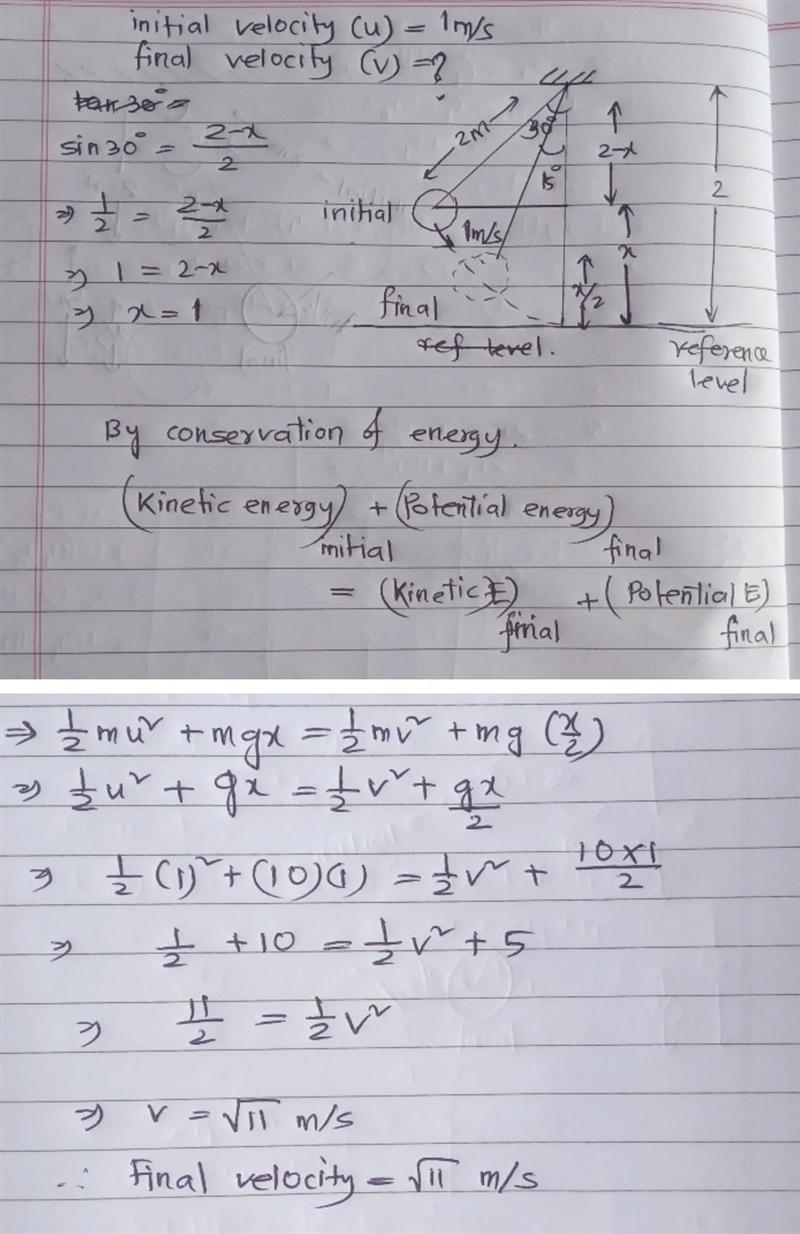 initial velocity (u) = 1m/s
final velocity (v) = ?
tan 30° =
sin 30° = 2-x / 2
⇒ 1/2 = 2-x / 2
⇒ 1 = 2-x
⇒ x = 1
2m
30°
15°
2-x
2
initial
1m/s
x
x/2
final
ref level.
reference
level
By conservation of energy.
(Kinetic energy) initial + (Potential energy) final
= (Kinetic E) final + (Potential E) final
⇒ 1/2 mu² + mgx = 1/2 mv² + mg (x/2)
⇒ 1/2 u² + gx = 1/2 v² + gx/2
⇒ 1/2 (1)² + (10)(1) = 1/2 v² + 10×1 / 2
⇒ 1/2 + 10 = 1/2 v² + 5
⇒ 11/2 = 1/2 v²
⇒ v = √11 m/s
∴ Final velocity = √11 m/s